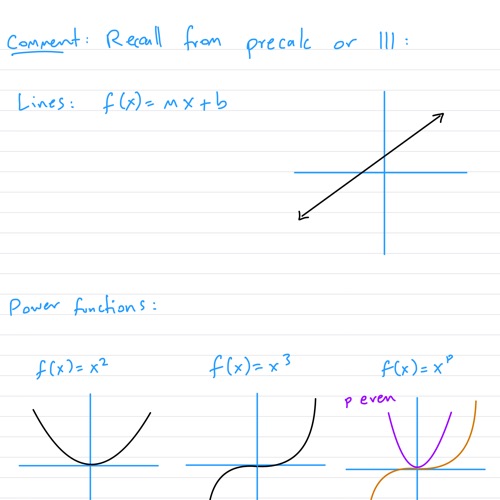 Comment: Recall from precalc or 111:
Lines: f(x) = mx + b
Power functions:
f(x) = x² f(x) = x³ f(x) = xᵖ
p even